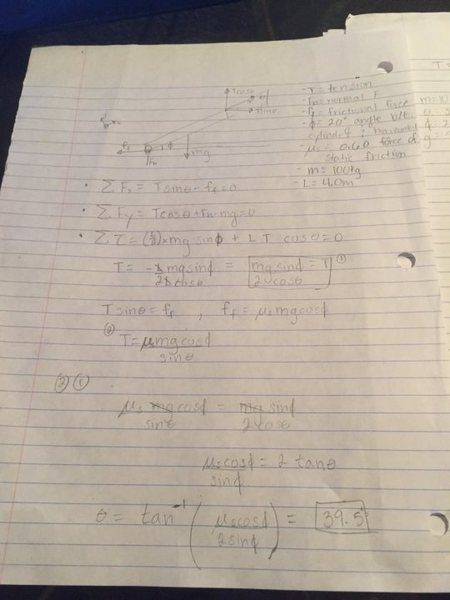 Tcosθ
Tsinθ
- T = tension
- Fn = normal F
- ff = frictional force
- ϕ = 20° angle b/w
cylinder ; horizontal
- μs = 0.60 force of
static friction
- m = 100kg
- L = 4.0m
ff
Fn
ϕ
mg
• ΣFx = Tsinθ - ff = 0
• ΣFy = Tcosθ + Fn - mg = 0
• Στ = (L/2) × mg sinϕ + L T cosθ = 0
mg sinϕ / 2cosθ = T ①
Tsinθ = ff , ff = μs mg cosϕ
② T = μs mg cosϕ / sinθ
② ①
μs mg cosϕ / sinθ = mg sinϕ / 2 cosθ
μs cosϕ / sinϕ = 2 tanθ
θ = tan⁻¹ ( μs cosϕ / 2 sinϕ ) = 39.5°